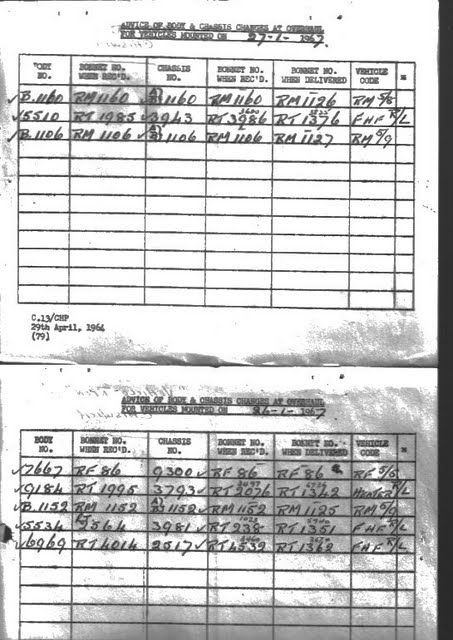 ADVICE OF BODY & CHASSIS CHANGES AT OVERHAUL
FOR VEHICLES MOUNTED ON 27-1-1967
BODY NO. BONNET NO. WHEN REC'D. CHASSIS NO. BONNET NO. WHEN REC'D. BONNET NO. WHEN DELIVERED VEHICLE CODE
✓B.1160 RM1160 ✓1160 RM1160 RM1126 RM 5/8
✓5510 RT 1985 ✓3943 RT3986 RT1376 FHF R/L
✓B.1106 RM 1106 ✓1106 RM1106 RM1127 RM 5/9
C.13/CHP
29th April, 1964
(79)
ADVICE OF BODY & CHASSIS CHANGES AT OVERHAUL
FOR VEHICLES MOUNTED ON 26-1-1967
BODY NO. BONNET NO. WHEN REC'D. CHASSIS NO. BONNET NO. WHEN REC'D. BONNET NO. WHEN DELIVERED VEHICLE CODE
✓7667 RF 86 9300✓ RF 86 RF 86 RF 5/5
✓9184 RT 1995 3793✓ RT2076 RT1342 HEATER R/L
✓B.1152 RM 1152 1152✓ RM1152 RM 1125 RM 5/9
✓5534 RT 3564 3981✓ RT238 RT1351 FHF R/L
✓6969 RT4014 2517✓ RT4539 RT1362 FHF R/L